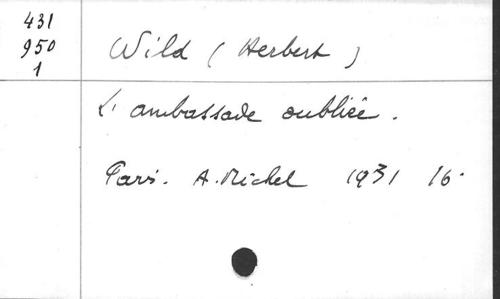 431
950
1
Wild (Herbert)
L'ambassade oubliée.
Paris. A. Michel 1931 16°